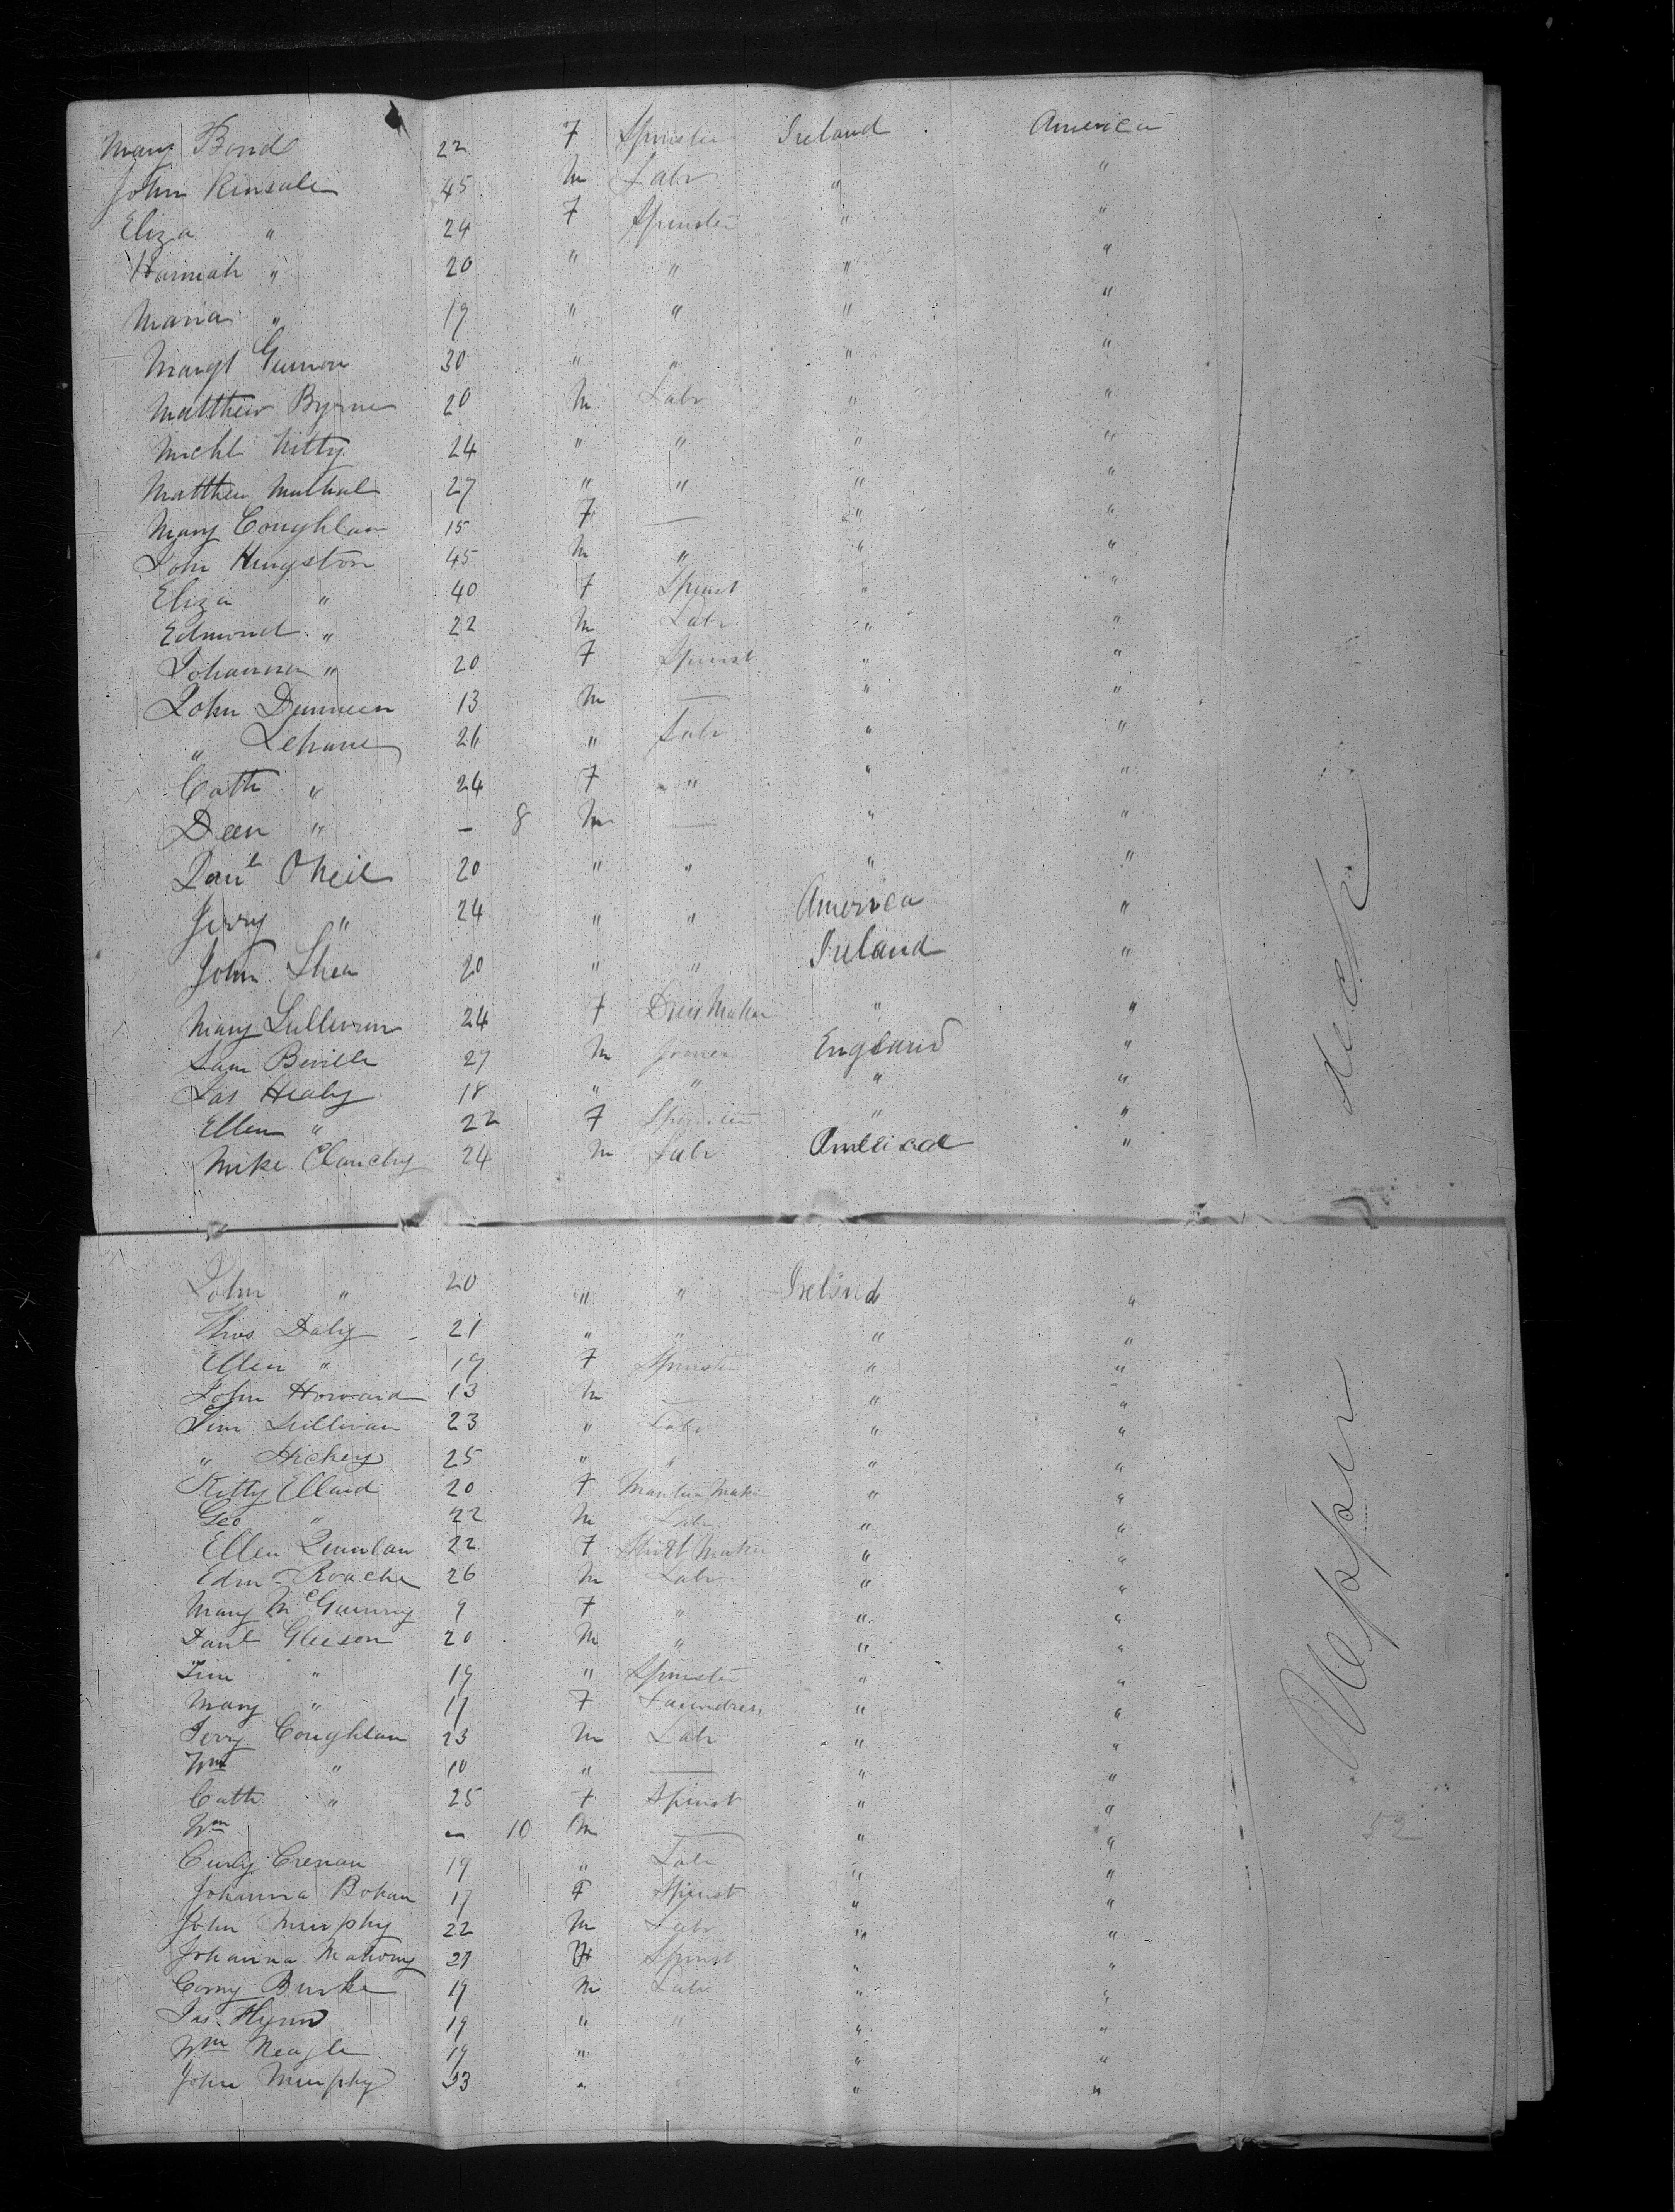 Mary Bond 22 F Spinster Ireland America
John Kinsale 45 M Labr " "
Eliza " 24 F Spinster " "
Hannah " 20 " " " "
Maria " 19 " " " "
Margt Gunnon 30 " " " "
Matthew Byrne 20 M Labr " "
Michl Nitty 24 " " " "
Matthew Mulhal 27 " " " "
Mary Coughlan 15 F — " "
John Kingston 45 M " " "
Eliza " 40 F Spinst " "
Edmond " 22 M Labr " "
Johanna " 20 F Spinst " "
John Dunneen 13 M — " "
" Lehane 26 " Labr " "
Cath " 24 F " " "
Deen " — 8 M — " "
Danl O'Neil 20 " " " "
Jerry " 24 " " America "
John Shea 20 " " Ireland "
Mary Sullivan 24 F Dress Maker " "
Sam Beville 27 M Joiner England "
Jas Healy 18 " " " "
Ellen " 22 F Spinster " "
Mike Clanchy 24 M Labr America "
John " 20 " " Ireland "
Thos Daly 21 " " " "
Ellen " 19 F Spinster " "
John Howard 13 M — " "
Tim Sullivan 23 " Labr " "
" Hickey 25 " " " "
Kitty Ellard 20 F Mantua Maker " "
Geo " 22 M Labr " "
Ellen Quinlan 22 F Shirt Maker " "
Edmd Roache 26 M Labr " "
Mary McGunny 9 F " " "
Danl Gleeson 20 M " " "
Tim " 19 " Spinster " "
Mary " 17 F Laundress " "
Jerry Coughlan 23 M Labr " "
Wm " 10 " — " "
Cath " 25 F Spinst " "
Wm — 10 M — " "
Curly Crenan 19 " Labr " "
Johanna Bohan 17 F Spinst " "
John Murphy 22 M Labr " "
Johanna Mahony 21 F Spinst " "
Corny Burke 19 M Labr " "
Jas. Flynn 19 " " " "
Wm Neagle 19 " " "
John Murphy 33 " " "
Upper deck
52